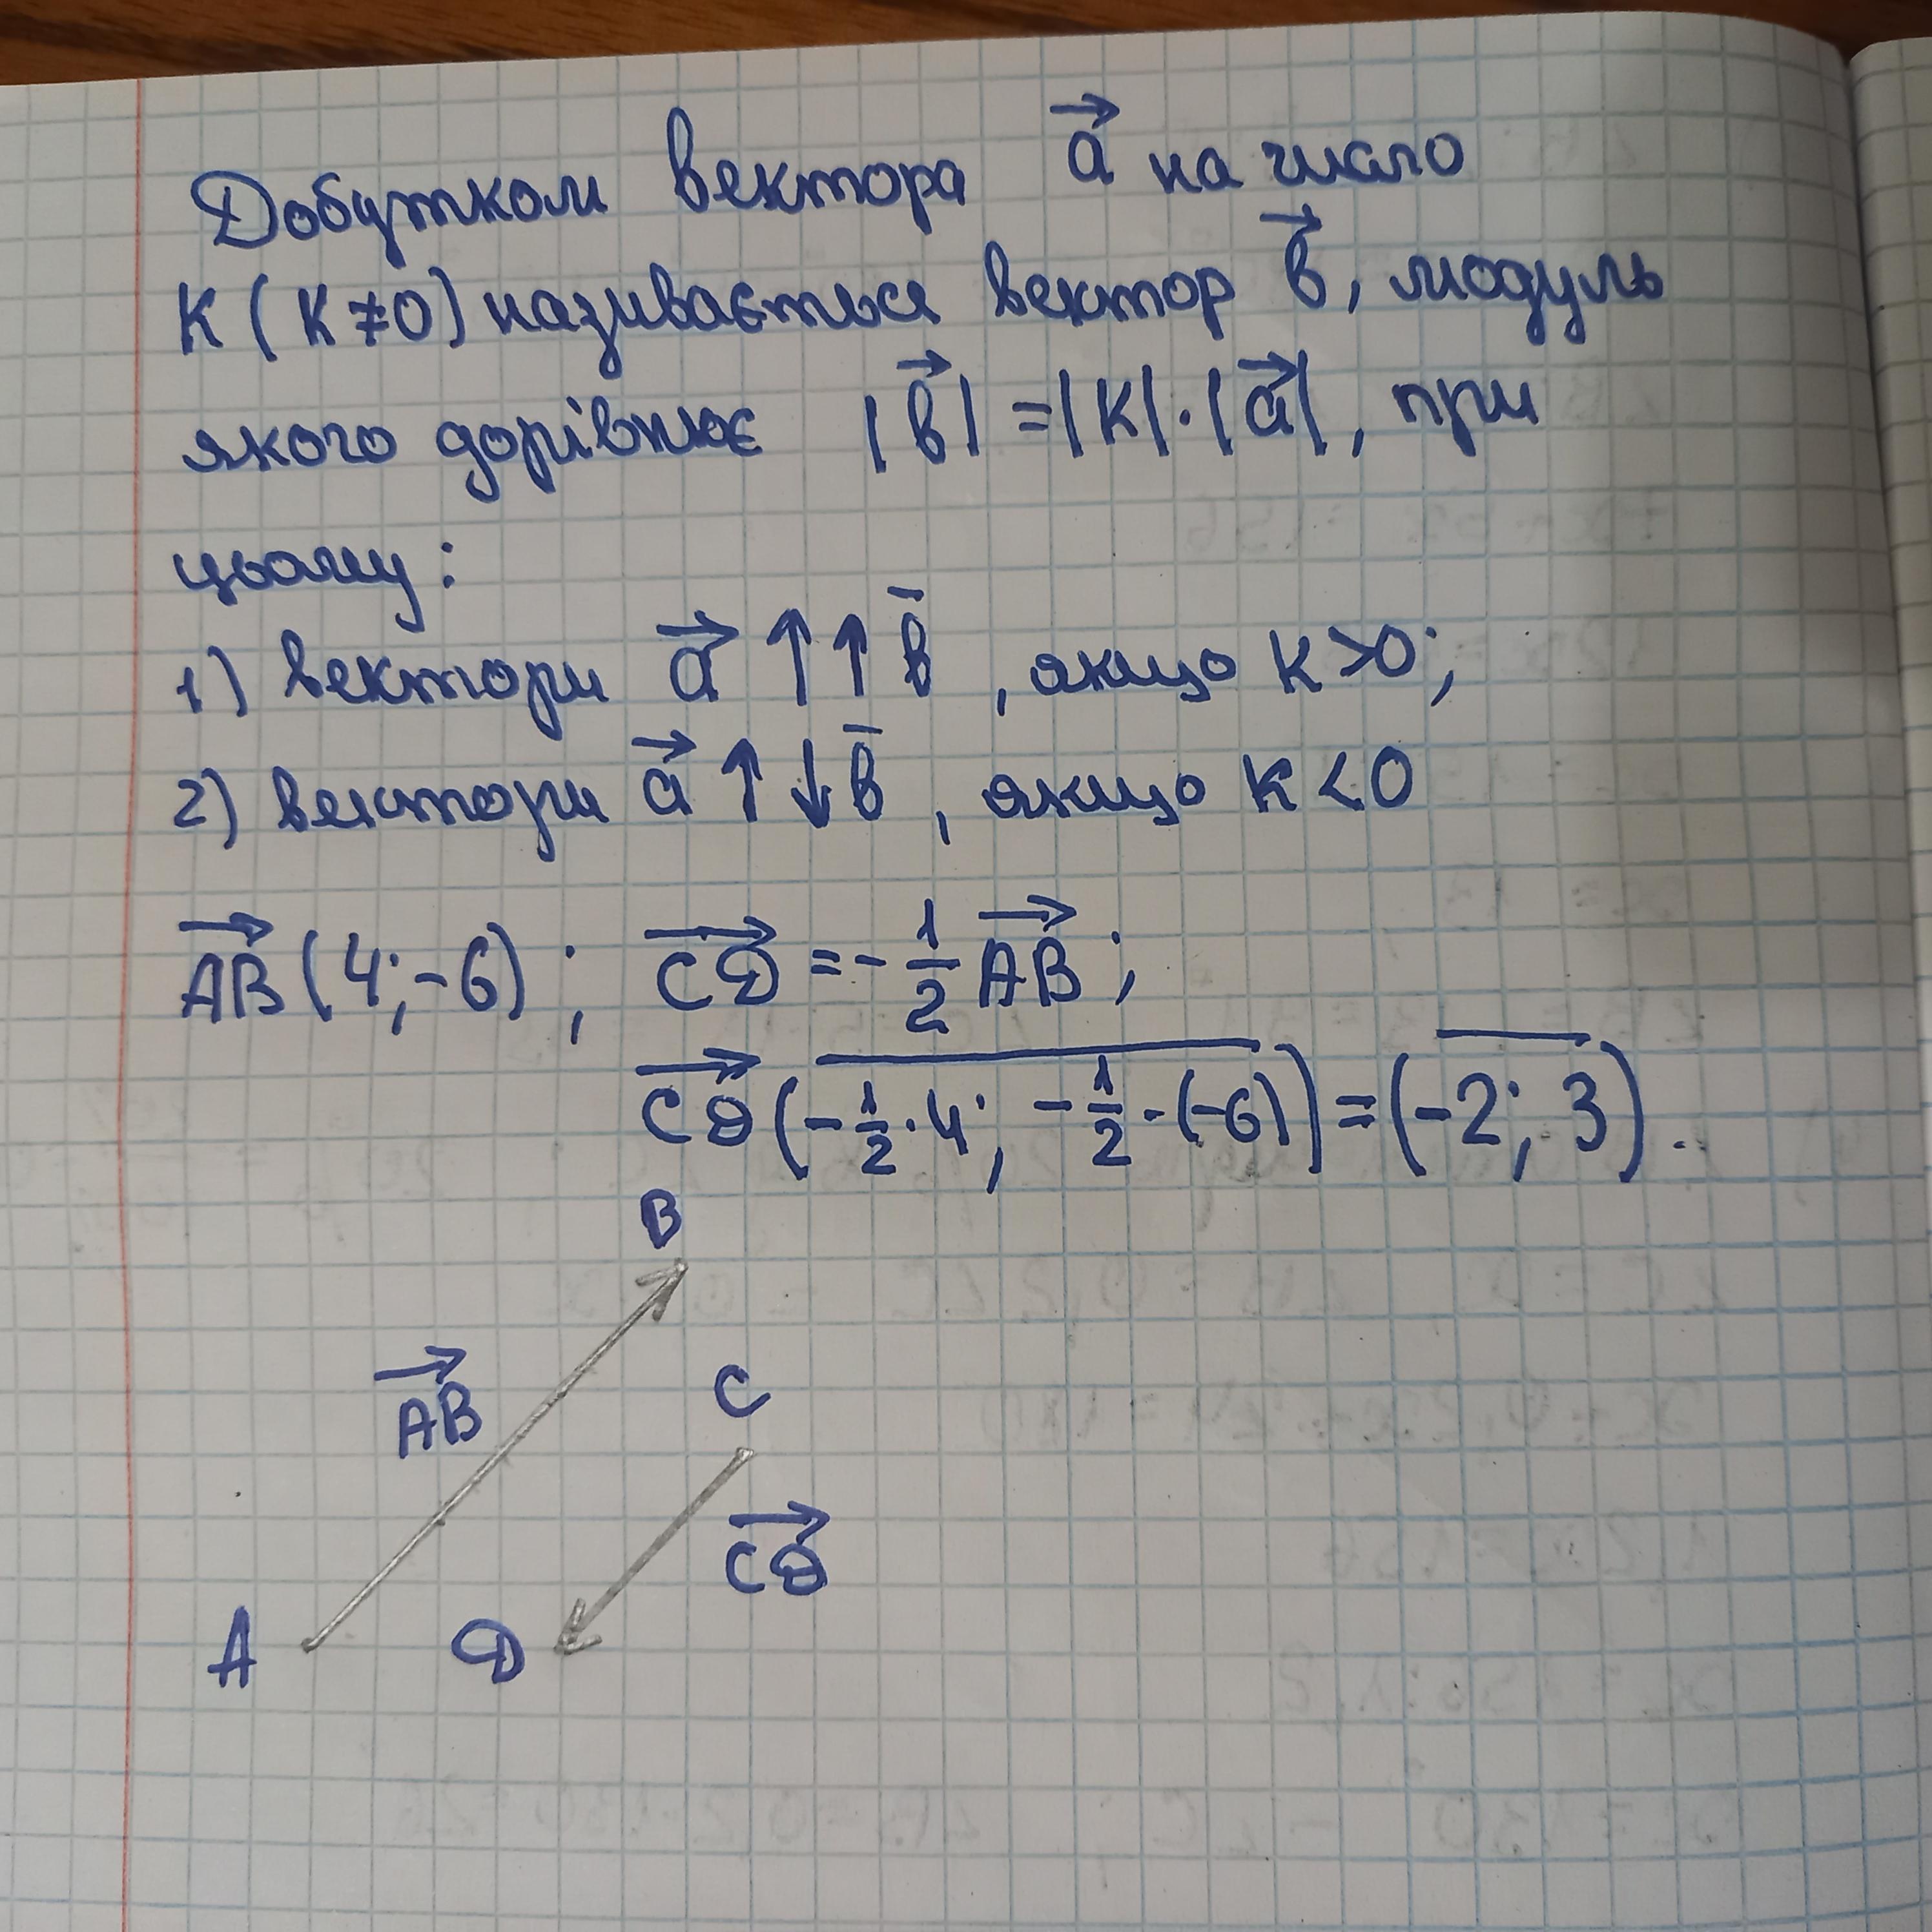 Добутком вектора a⃗ на число
К (К≠0) називається вектор b⃗, модуль
якого дорівнює |b⃗| = |К|·|a⃗|, при
цьому:
1) вектори a⃗ ↑↑ b̄, якщо К>0;
2) вектори a⃗ ↑↓ b̄, якщо К<0
AB⃗ (4;-6); CD⃗ = -1/2 AB⃗;
CD⃗ (-1/2·4; -1/2·(-6)) = (-2; 3).
B
AB⃗
C
CD⃗
A D